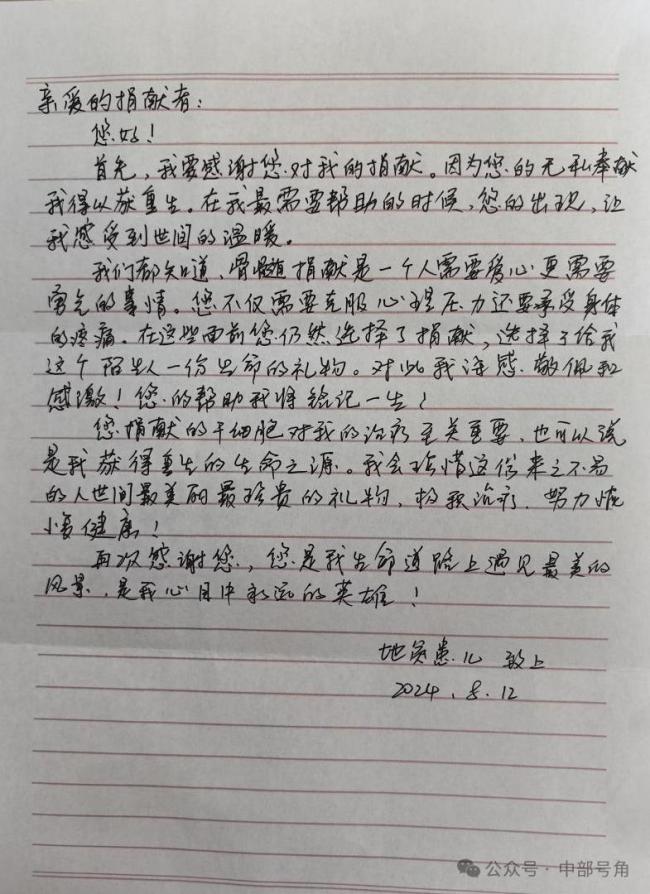 亲爱的捐献者：
您好！
首先，我要感谢您对我的捐献。因为您的无私奉献
我得以获重生。在我最需要帮助的时候，您的出现，让
我感受到世间的温暖。
我们都知道，骨髓捐献是一个人需要爱心更需要
勇气的事情。您不仅需要克服心理压力还要承受身体
的疼痛。在这些面前您仍然选择了捐献，选择了给我
这个陌生人一份生命的礼物。对此我深感敬佩和
感激！您的帮助我将铭记一生！
您捐献的干细胞对我的治疗至关重要，也可以说
是我获得重生的生命之源。我会珍惜这份来之不易
的人世间最美丽最珍贵的礼物，积极治疗，努力恢
复健康！
再次感谢您，您是我生命道路上遇见最美的
风景，是我心目中永远的英雄！
地贫患儿 敬上
2024.8.12
公众号·中部号角